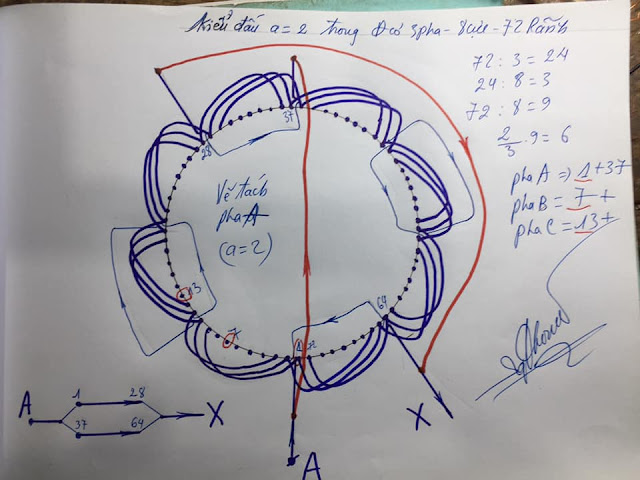 kiểu đấu a = 2 trong Đ/cơ 3pha - 8cực - 72 Rãnh
72 : 3 = 24
24 : 8 = 3
72 : 8 = 9
2/3 . 9 = 6
pha A => 1 + 37
pha B = 7 +
pha C = 13 +
28
37
Vẽ tách
pha A
(a = 2)
13
7
1
64
X
A
A
1
28
37
64
X